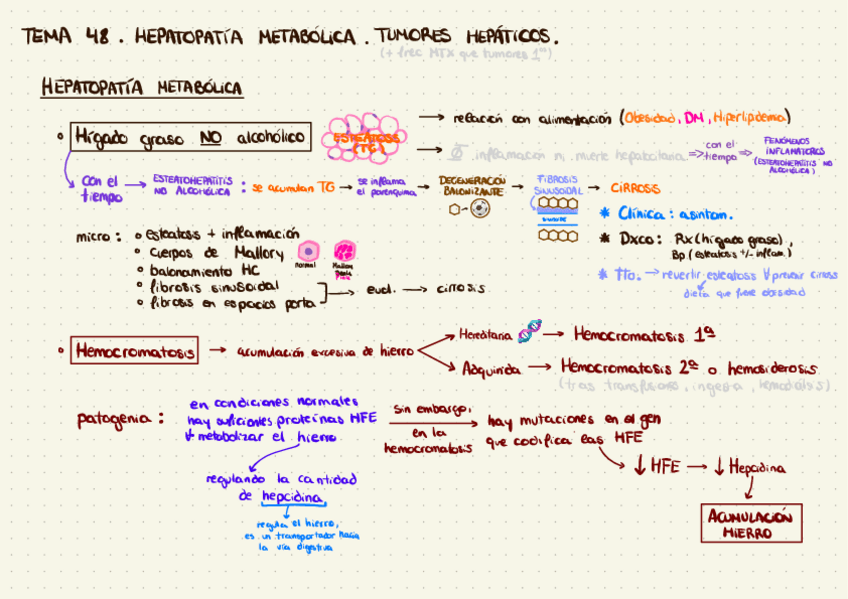 TEMA 48. HEPATOPATÍA METABÓLICA. TUMORES HEPÁTICOS.
(+ frec MTX que tumores 1º)
HEPATOPATÍA METABÓLICA
Hígado graso NO alcohólico
ESTEATOSIS (TG)
→ relación con alimentación (Obesidad, DM, Hiperlipidemia)
→ Ø inflamación ni muerte hepatocitaria ⇒ con el tiempo ⇒ FENÓMENOS INFLAMATORIOS (ESTEATOHEPATITIS NO ALCOHÓLICA)
con el tiempo → ESTEATOHEPATITIS NO ALCOHÓLICA : se acumulan TG → se inflama el parénquima → DEGENERACIÓN BALONIZANTE → FIBROSIS SINUSOIDAL → CIRROSIS
* Clínica : asintom.
* Dxco : Rx (hígado graso), Bp (esteatosis +/- inflam.)
* Tto. → revertir esteatosis ∀ prevenir cirrosis
dieta que fuere obesidad
micro : esteatosis + inflamación
cuerpos de Mallory
normal
Mallory
balonamiento HC
fibrosis sinusoidal
fibrosis en espacios porta
→ evol. → cirrosis
Hemocromatosis → acumulación excesiva de hierro
Hereditaria → Hemocromatosis 1ª
Adquirida → Hemocromatosis 2ª o hemosiderosis
(tras transfusiones, ingesta, hemodiálisis).
patogenia :
en condiciones normales
hay suficientes proteínas HFE
∀ metabolizar el hierro
regulando la cantidad
de hepcidina
regula el hierro,
es un transportador hacia
la vía digestiva
sin embargo,
en la
hemocromatosis
hay mutaciones en el gen
que codifica las HFE
↓ HFE → ↓ Hepcidina
ACUMULACIÓN
HIERRO